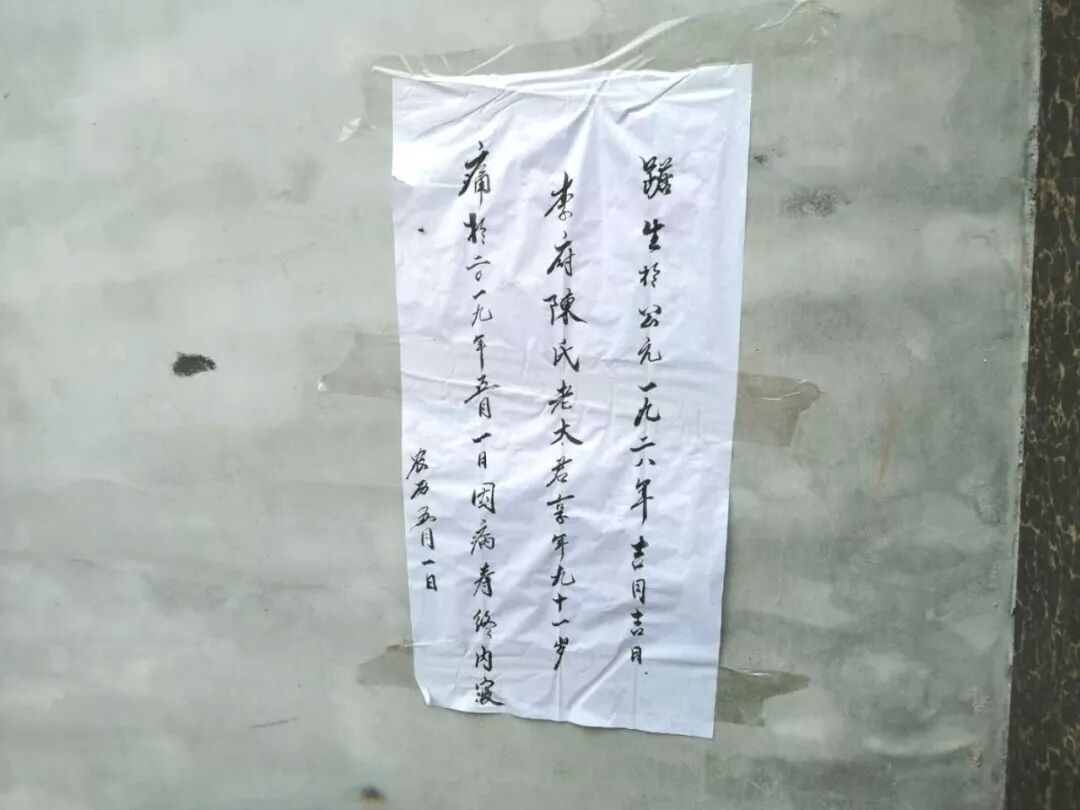 生於公元一九二八年吉月吉日
李府陳氏老太君享年九十一岁
痛於二〇一九年五月一日因病寿终内寝
农历五月一日